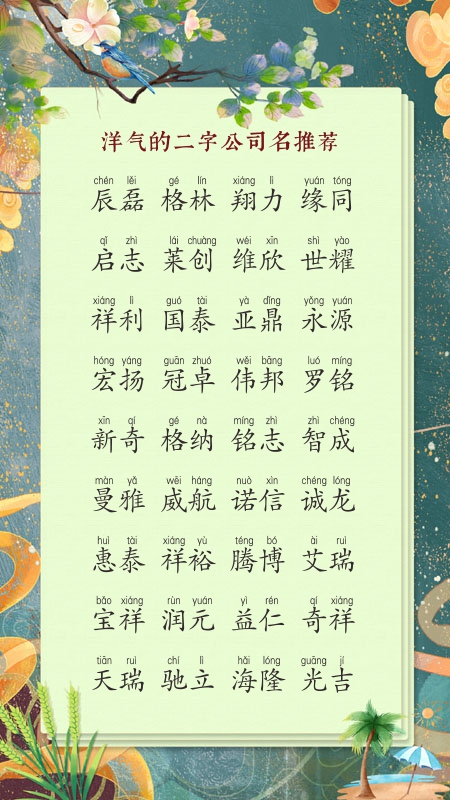 洋气的二字公司名推荐
chén lěi gé lín xiáng lì yuán tóng
辰磊 格林 翔力 缘同
qǐ zhì lái chuàng wéi xīn shì yào
启志 莱创 维欣 世耀
xiáng lì guó tài yà dǐng yǒng yuán
祥利 国泰 亚鼎 永源
hóng yáng guān zhuó wěi bāng luó míng
宏扬 冠卓 伟邦 罗铭
xīn qí gé nà míng zhì zhì chéng
新奇 格纳 铭志 智成
màn yǎ wēi háng nuò xìn chéng lóng
曼雅 威航 诺信 诚龙
huì tài xiáng yù téng bó ài ruì
惠泰 祥裕 腾博 艾瑞
bǎo xiáng rùn yuán yì rén qí xiáng
宝祥 润元 益仁 奇祥
tiān ruì chí lì hǎi lóng guāng jí
天瑞 驰立 海隆 光吉